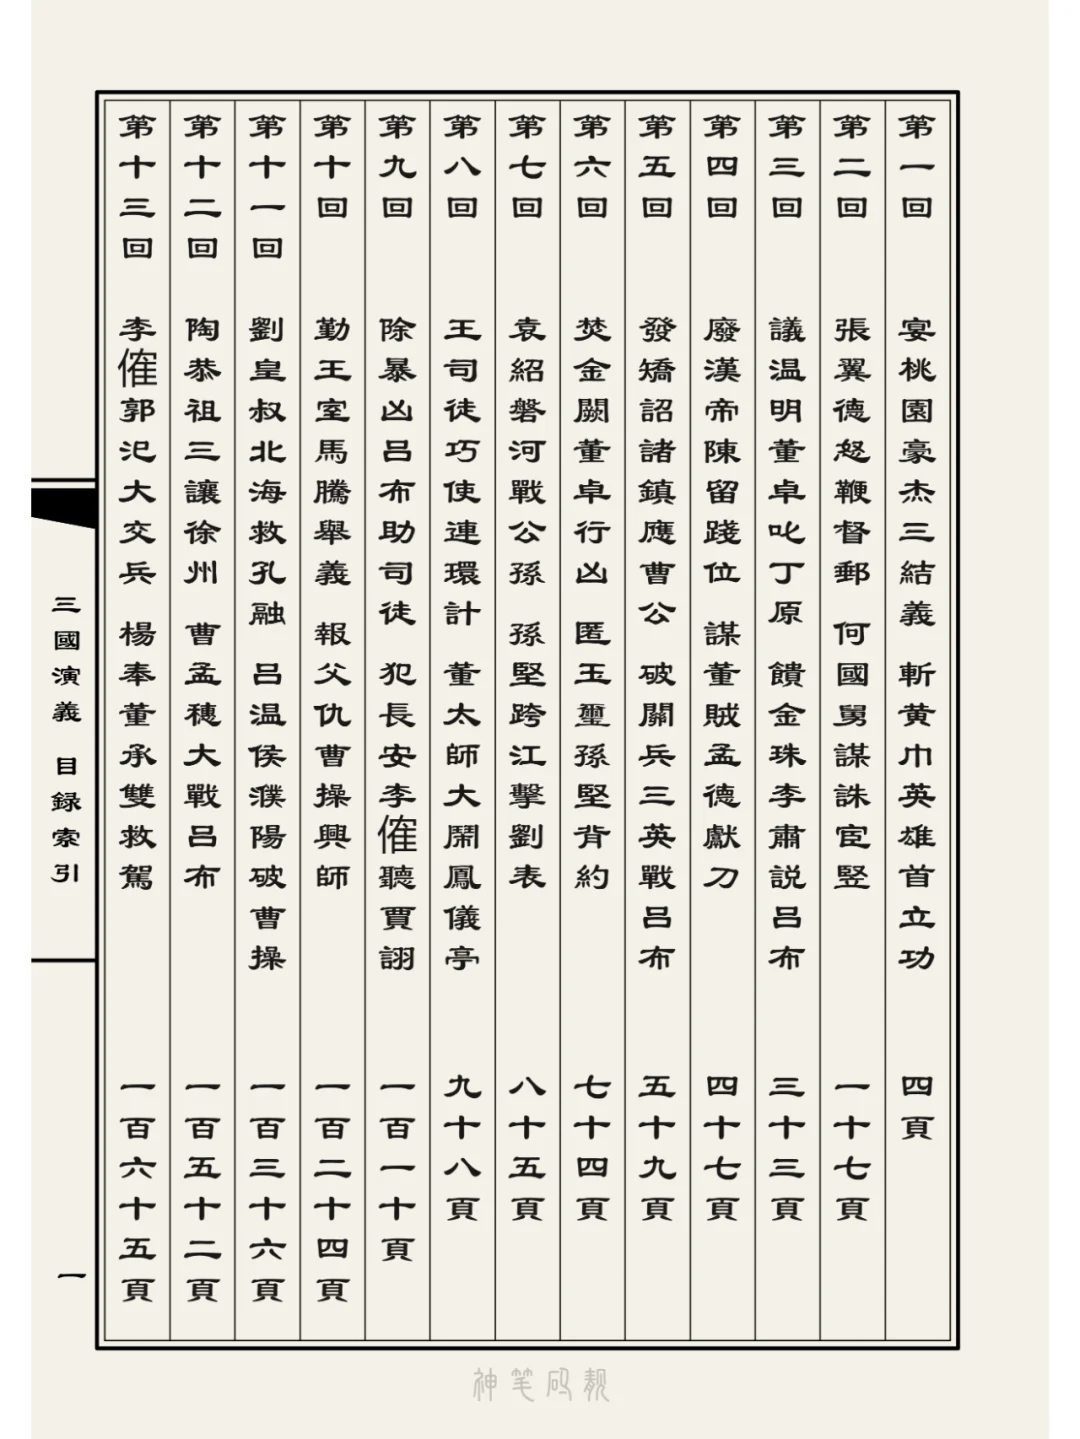 第一回 宴桃園豪杰三結義 斬黄巾英雄首立功 四頁
第二回 張翼德怒鞭督郵 何國舅謀誅宦竪 一十七頁
第三回 議温明董卓叱丁原 饋金珠李肅説吕布 三十三頁
第四回 廢漢帝陳留踐位 謀董賊孟德獻刀 四十七頁
第五回 發矯詔諸鎮應曹公 破關兵三英戰吕布 五十九頁
第六回 焚金闕董卓行凶 匿玉璽孫堅背約 七十四頁
第七回 袁紹磐河戰公孫 孫堅跨江擊劉表 八十五頁
第八回 王司徒巧使連環計 董太師大鬧鳳儀亭 九十八頁
第九回 除暴凶吕布助司徒 犯長安李傕聽賈詡 一百一十頁
第十回 勤王室馬騰舉義 報父仇曹操興師 一百二十四頁
第十一回 劉皇叔北海救孔融 吕温侯濮陽破曹操 一百三十六頁
第十二回 陶恭祖三讓徐州 曹孟穗大戰吕布 一百五十二頁
第十三回 李傕郭汜大交兵 楊奉董承雙救駕 一百六十五頁
三國演義 目録索引
一
神笔码靓